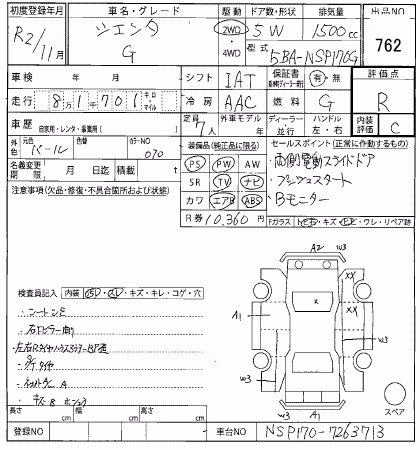 初度登録年月 車名・グレード 駆動 ドア数・形状 排気量 出品NO
R2/11月 シエンタ G 2WD ・4WD 5W 1500cc 762
型式 5BA-NSP170G
車検 年 月 シフト IAT 保証書 有・無 ハンドル 評価点
走行 8万1千701 キロ・マイル 冷房 AAC 燃料 G R
車歴 自家用・レンタ・事業用( ) 定員 7人 外車モデル ディーラー・並行 ハンドル 左・右 内装評価 C
外色 元色 色替 カラーNO 装備品(純正品に限る) セールスポイント(正常に作動するもの)
パール 070 PS PW AW 両側電動スライドドア
名義変更期限 月 日迄 積載 t SR TV ナビ プッシュスタート
注意事項(欠品・修復・不具合箇所および状態) カワ エアB ABS Bモニター
R券 10,360円 Fガラス ヒビ・キズ・ヒビ・ウレ・リペア跡
A2 w3 w3
XX
X
XX
検査員記入 内装 ・キズ・キレ・コゲ・穴
A1
シートシミ
w3
w3
キズ
w3 A1 w3
スペア
長さ cm 幅 cm 高さ cm
登録NO 車台NO NSP170-7263713